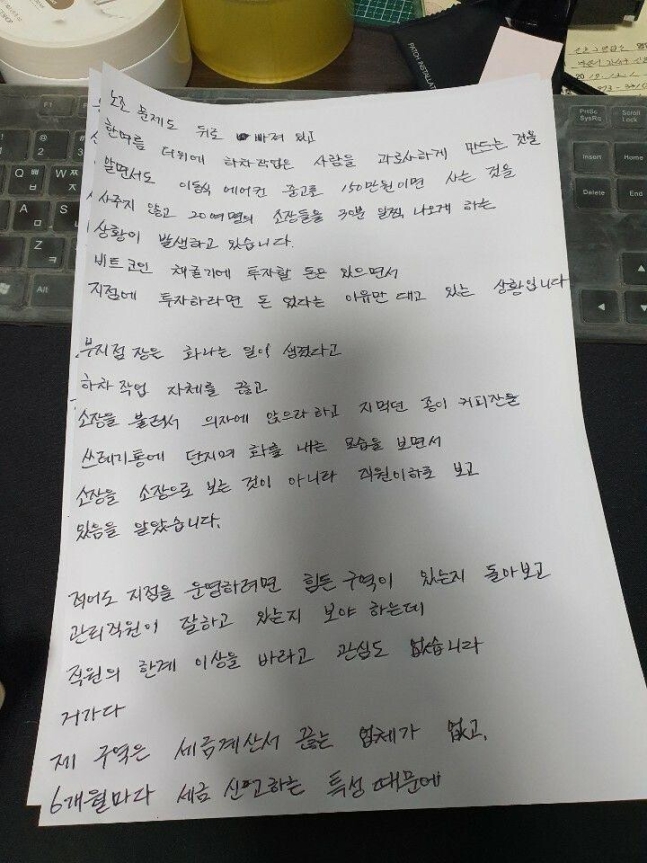 노조 문제도 뒤로 빠져 있고
한여름 더위에 하차작업은 사람을 과로사하게 만드는 것을
알면서도 이동식 에어컨 중고로 150만원이면 사는 것을
사주지 않고 20여명의 소장들을 30분 일찍 나오게 하는
상황이 발생하고 있습니다.
비트코인 채굴기에 투자할 돈은 있으면서
지점에 투자하라면 돈 없다는 이유만 대고 있는 상황입니다
부지점장은 화나는 일이 생겼다고
하차작업 자체를 끊고
소장을 불러서 의자에 앉으라하고 지먹던 종이 커피잔을
쓰레기통에 던지며 화를 내는 모습을 보면서
소장을 소장으로 보는 것이 아니라 직원이하로 보고
있음을 알았습니다.
적어도 지점을 운영하려면 힘든 구역이 있는지 돌아보고
관리직원이 잘하고 있는지 보아야 하는데
직원의 한계 이상을 바라고 관심도 없습니다
거기다
제 구역은 세금계산서 끊는 업체가 없고,
6개월마다 세금 신고하는 특성 때문에
PATCH INSTALLATION
PrtSc
SysRq
Scroll
Lock
Insert
Home
Delete
End
Alt